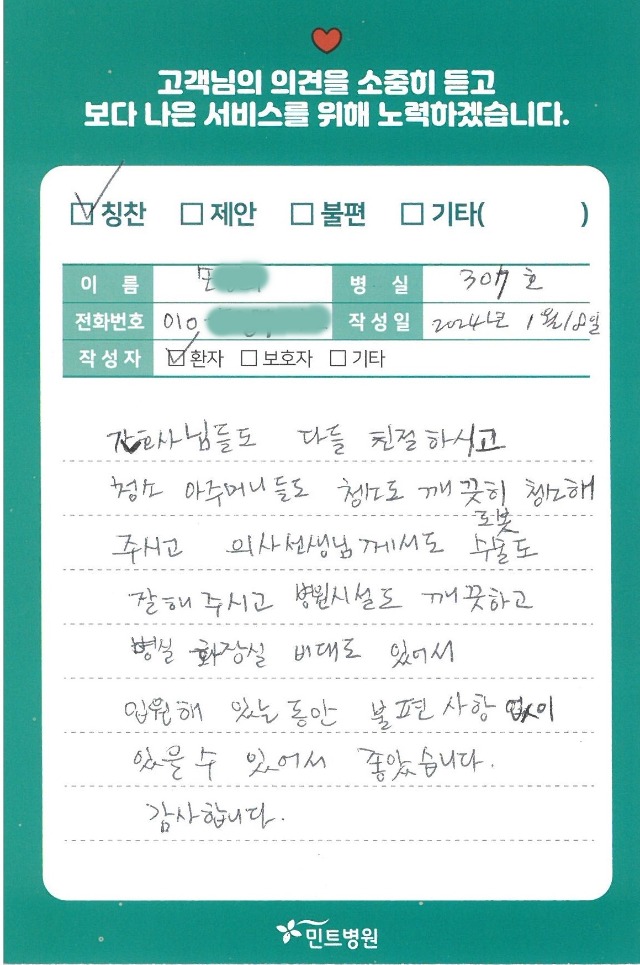 고객님의 의견을 소중히 듣고
보다 나은 서비스를 위해 노력하겠습니다.
칭찬 제안 불편 기타( )
이 름 병 실 307호
전화번호 010- 작성일 2024년 1월18일
작성자 환자 보호자 기타
간호사님들도 다들 친절하시고
청소 아주머니들도 청소도 깨끗히 청소해
로봇
주시고 의사선생님께서도 수술도
잘해주시고 병원시설도 깨끗하고
병실 화장실 비대도 있어서
입원해 있는동안 불편사항 없이
있을수 있어서 좋았습니다.
감사합니다.
민트병원